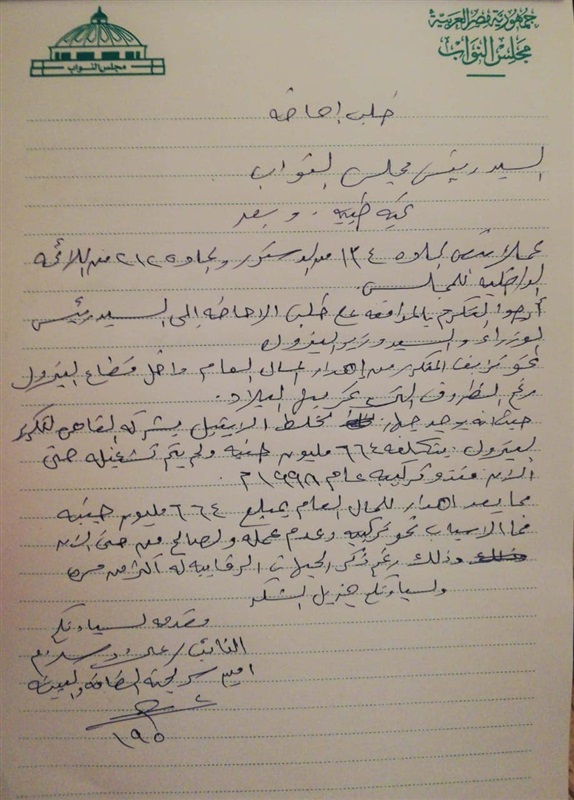 جمهورية مصر العربية
مجلس النواب
مجلس النواب
طلب إحاطة
السيد رئيس مجلس النواب
تحية طيبة .. وبعد
عملا بنص المادة ١٣٤ من الدستور والمادة ٢١٢ من اللائحة
الداخلية للمجلس.
أرجوا التكرم بالموافقة على طلب الاحاطة إلى السيد رئيس
الوزراء والسيد وزير البترول
نحو المال العام داخل قطاع البترول
رغم الظروف التى تمر بها البلاد.
حيث انه يوجد جهاز لخلط الايثيل بشركة القاهرة لتكرير
البترول بتكلفة ٦٦٤ مليون جنيه ولم يتم تشغيله حتى
الآن منذ تركيبه عام ١٩٩٨ م
مما يعد اهدار للمال العام بمبلغ ٦٦٤ مليون جنيه
فما الاسباب نحو تركيبه وعدم عمله ولصالح من حتى الآن
وذلك رغم ذكر الجهات الرقابية له أكثر من مرة
ولسيادتكم جزيل الشكر
مقدمه لسيادتكم
النائب /
امين سر لجنة الطاقة والبيئة
١٩٥